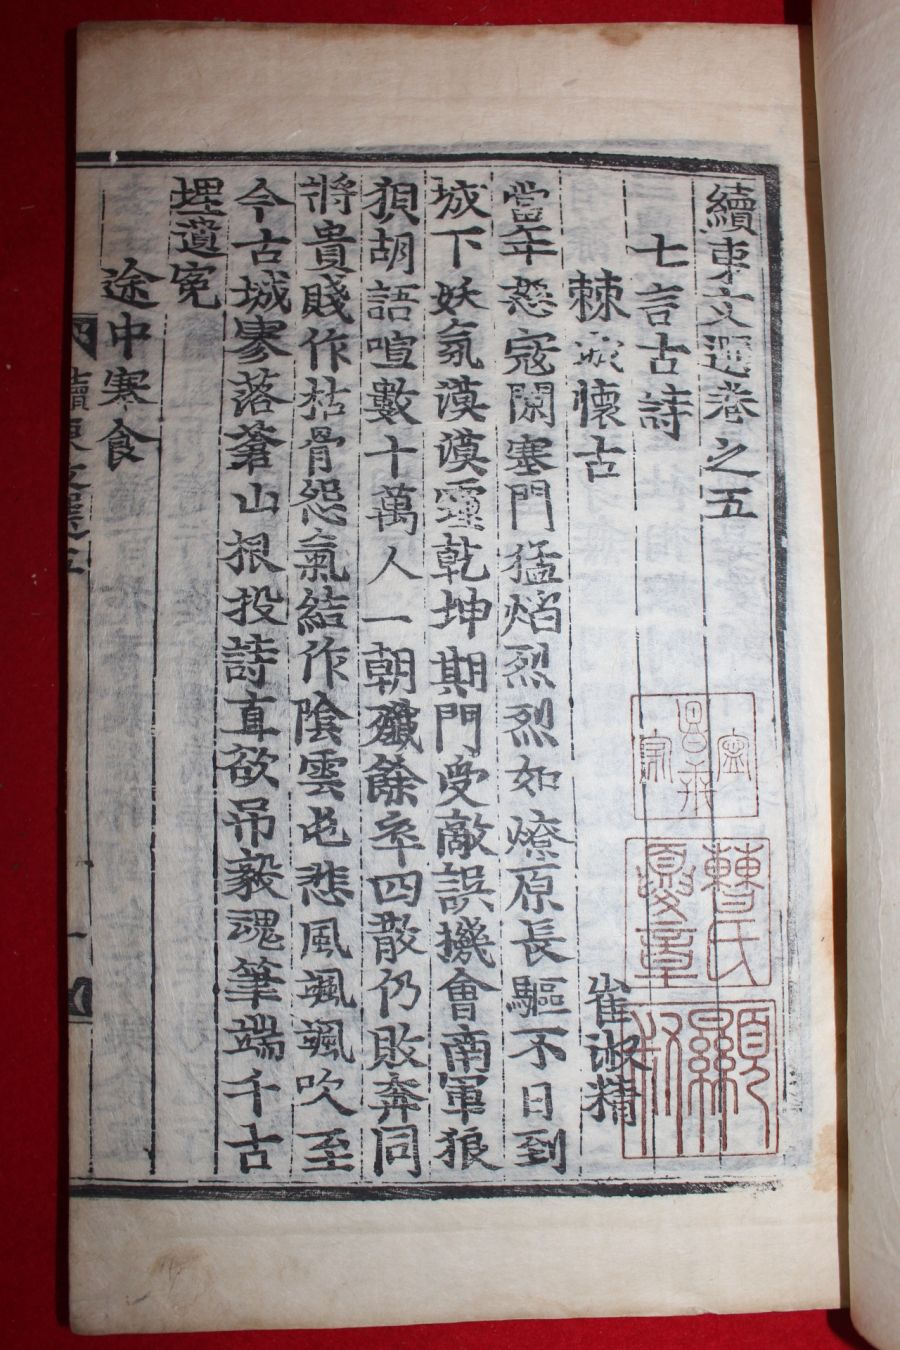 續東文選卷之五
七言古詩
棘城懷古
崔淑精
當年怒寇闌塞門猛焰烈烈如燎原長驅不日到
城下妖氛漠漠霾乾坤期門受敵誤機會南軍狼
狽胡語喧數十萬人一朝殲餘卒四散仍敗奔同
將貴賤作枯骨怨氣結作陰雲屯悲風颯颯吹至
今古城寥落蒼山根投詩直欲吊毅魂筆端千古
埋遺寃
途中寒食
續東文選五
一
曹氏
顯